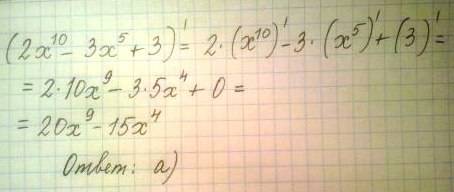 (2x¹⁰ - 3x⁵ + 3)' = 2·(x¹⁰)' - 3·(x⁵)' + (3)' =
= 2·10x⁹ - 3·5x⁴ + 0 =
= 20x⁹ - 15x⁴
Ответ: а)